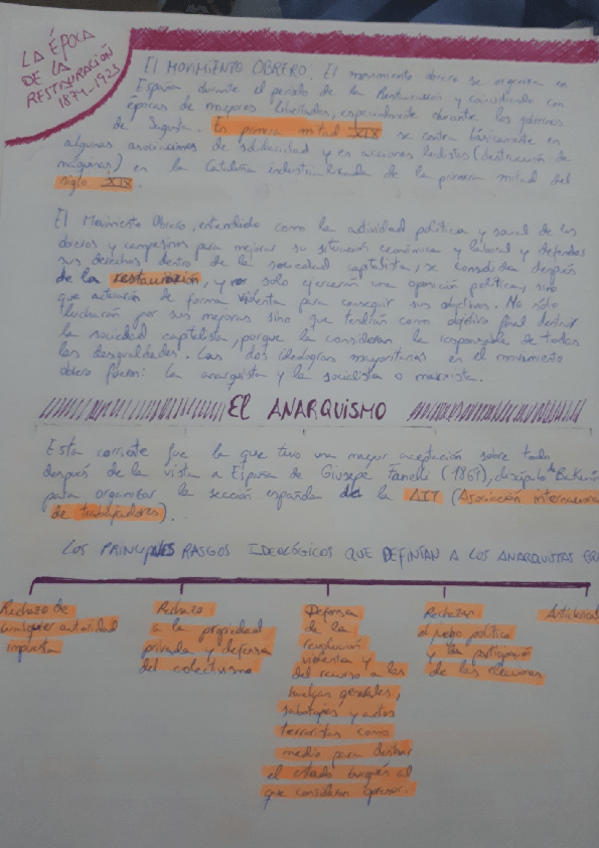 LA ÉPOCA
DE LA
RESTAURACIÓN
1874-1923
El MOVIMIENTO OBRERO. El movimiento obrero se organiza en
España durante el periodo de la Restauración y coincidiendo con
épocas de mayores libertades, especialmente durante los gobiernos
de Sagasta. En primera mitad XIX se centra básicamente en
algunas asociaciones de solidaridad y en acciones ludistas (destrucción de
máquinas) en la Cataluña industrializada de la primera mitad del
siglo XIX.
El Movimiento Obrero, entendido como la actividad política y social de los
obreros y campesinos para mejorar su situación económica y laboral y defender
sus derechos dentro de la sociedad capitalista, se consolida después
de la restauración, y no solo ejercerán una oposición política, sino
que actuarán de forma violenta para conseguir sus objetivos. No sólo
lucharán por sus mejoras sino que tendrán como objetivo final destruir
la sociedad capitalista, porque la consideran la responsable de todas
las desigualdades. Las dos ideologías mayoritarias en el movimiento
obrero fueron: la anarquista y la socialista o marxista.
EL ANARQUISMO
Esta corriente fue la que tuvo una mayor aceptación sobre todo
después de la visita a España de Giusepe Fanelli (1869), discípulo de
para organizar la sección española de la AIT (Asociación
de trabajadores).
LOS PRINCIPALES RASGOS IDEOLÓGICOS QUE DEFINÍAN A LOS ANARQUISTAS
Rechazo de
cualquier autoridad
impuesta
Rechazo
a la propiedad
privada y defensa
del colectivismo
Defensa
de la
revolución
violenta y
del recurso a las
huelgas generales,
sabotajes y actos
terroristas como
medio para destruir
el estado burgués al
que consideran opresor.
Rechazar
el juego político
y la participación
de las elecciones